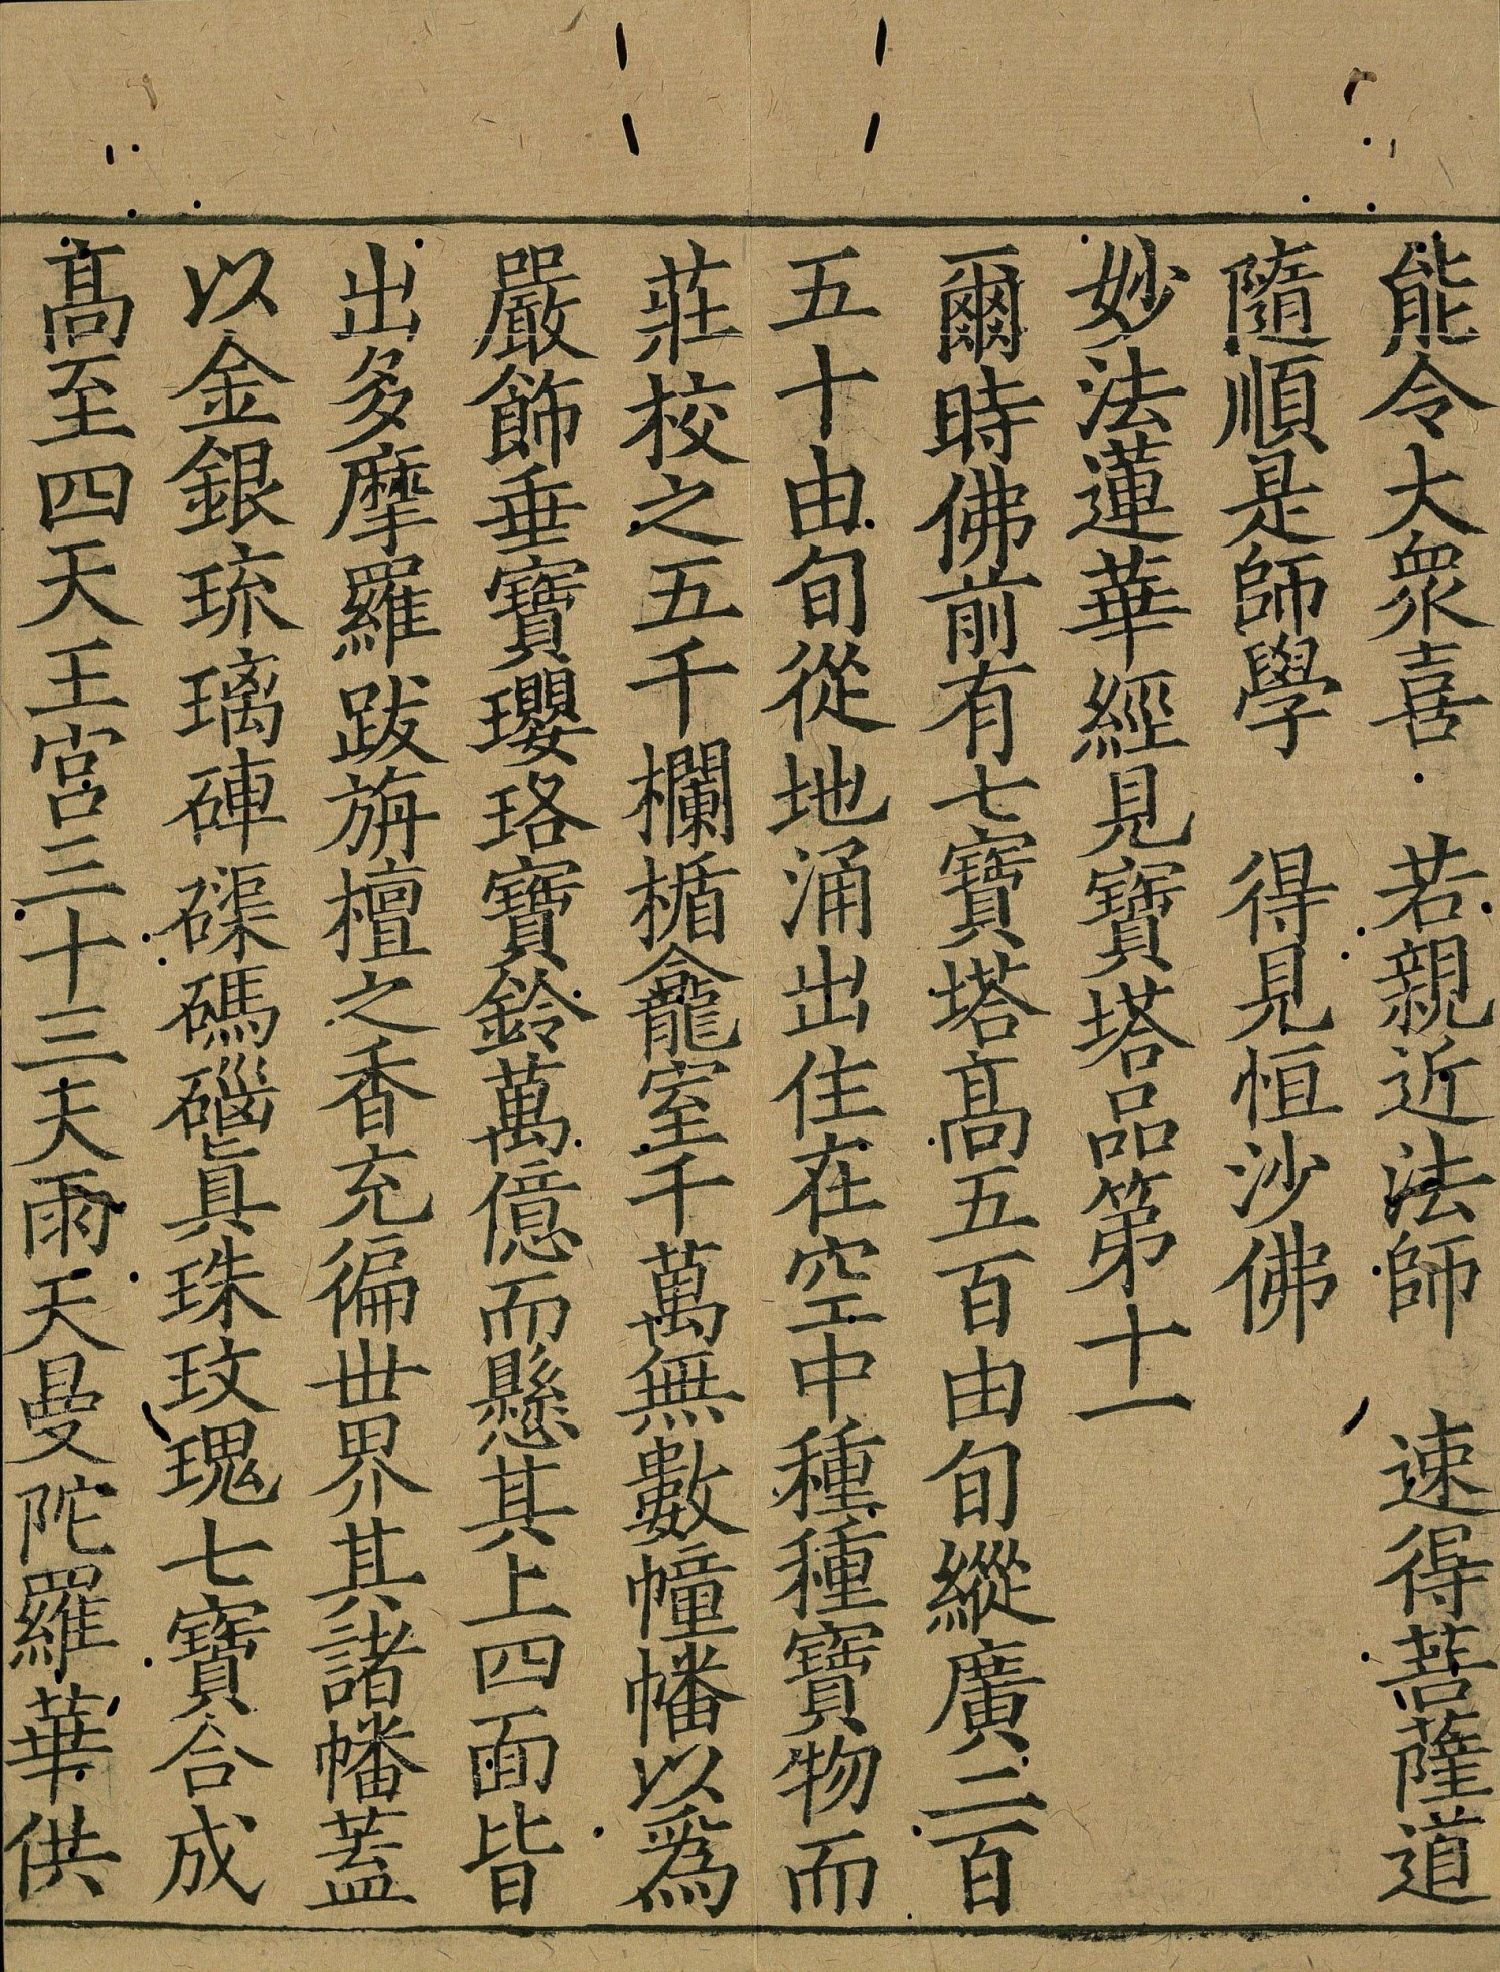 能令大衆喜　若親近法師　速得菩薩道
隨順是師學　得見恒沙佛
妙法蓮華經見寶塔品第十一
爾時佛前有七寶塔高五百由旬縱廣二百
五十由旬從地涌出住在空中種種寶物而
莊校之五千欄楯龕室千萬無數幢幡以爲
嚴飾垂寶瓔珞寶鈴萬億而懸其上四面皆
出多摩羅跋旃檀之香充徧世界其諸幡蓋
以金銀琉璃硨磲碼碯眞珠玫瑰七寶合成
髙至四天王宮三十三天雨天曼陀羅華供